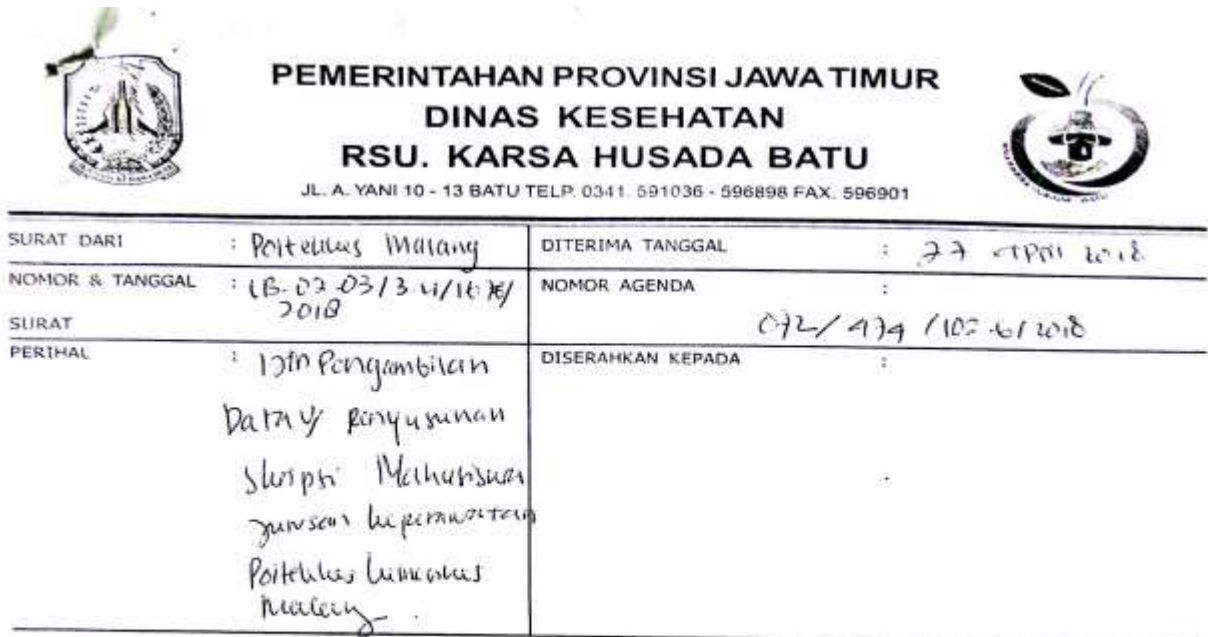 PEMERINTAHAN PROVINSI JAWA TIMUR
DINAS KESEHATAN
RSU. KARSA HUSADA BATU
JL. A. YANI 10 - 13 BATU TELP. 0341. 591036 - 596898 FAX. 596901
SURAT DARI : Poltekkes Malang
DITERIMA TANGGAL : 27 April 2018
NOMOR & TANGGAL SURAT : 2018
NOMOR AGENDA :
PERIHAL : Ijin Pengambilan
Data u/ penyusunan
skripsi Mahasiswa
jurusan keperawatan
Poltekkes kemenkes
Malang.
DISERAHKAN KEPADA :